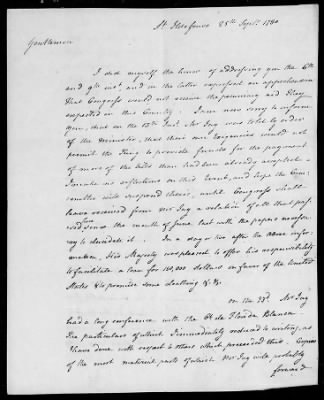 St. Ildefonso 25th Sept. 1780
Gentlemen
I did myself the honor of addressing you the 6th
and 9th inst. and in the latter expressed an apprehension
that Congress would not receive the pecuniary aid they
expected in this Country. I am now sorry to inform
you, that on the 15th Inst. Mr Jay was told by order
of the Minister, that their own exigencies would not
permit the King to provide funds for the payment
of more of the bills than had been already accepted.
I make no reflections on this event, and hope the Com-
mittee will suspend theirs, until Congress shall
have received from Mr Jay a relation of all that pas-
sed since the month of June last with the papers necessa-
ry to elucidate it. In a day or two after the above infor-
mation, His Majesty was pleased to offer his responsibility
to facilitate a loan for 150,000 dollars in favor of the United
States & to promise some cloathing &c.
on the 23d. Mr Jay
had a long conference with the Ct de Florida Blanca
the particulars of which I immediately reduced to writing, as
I have done with regard to others which preceeded that. Copies
of the most material parts of which Mr Jay will probably
forward